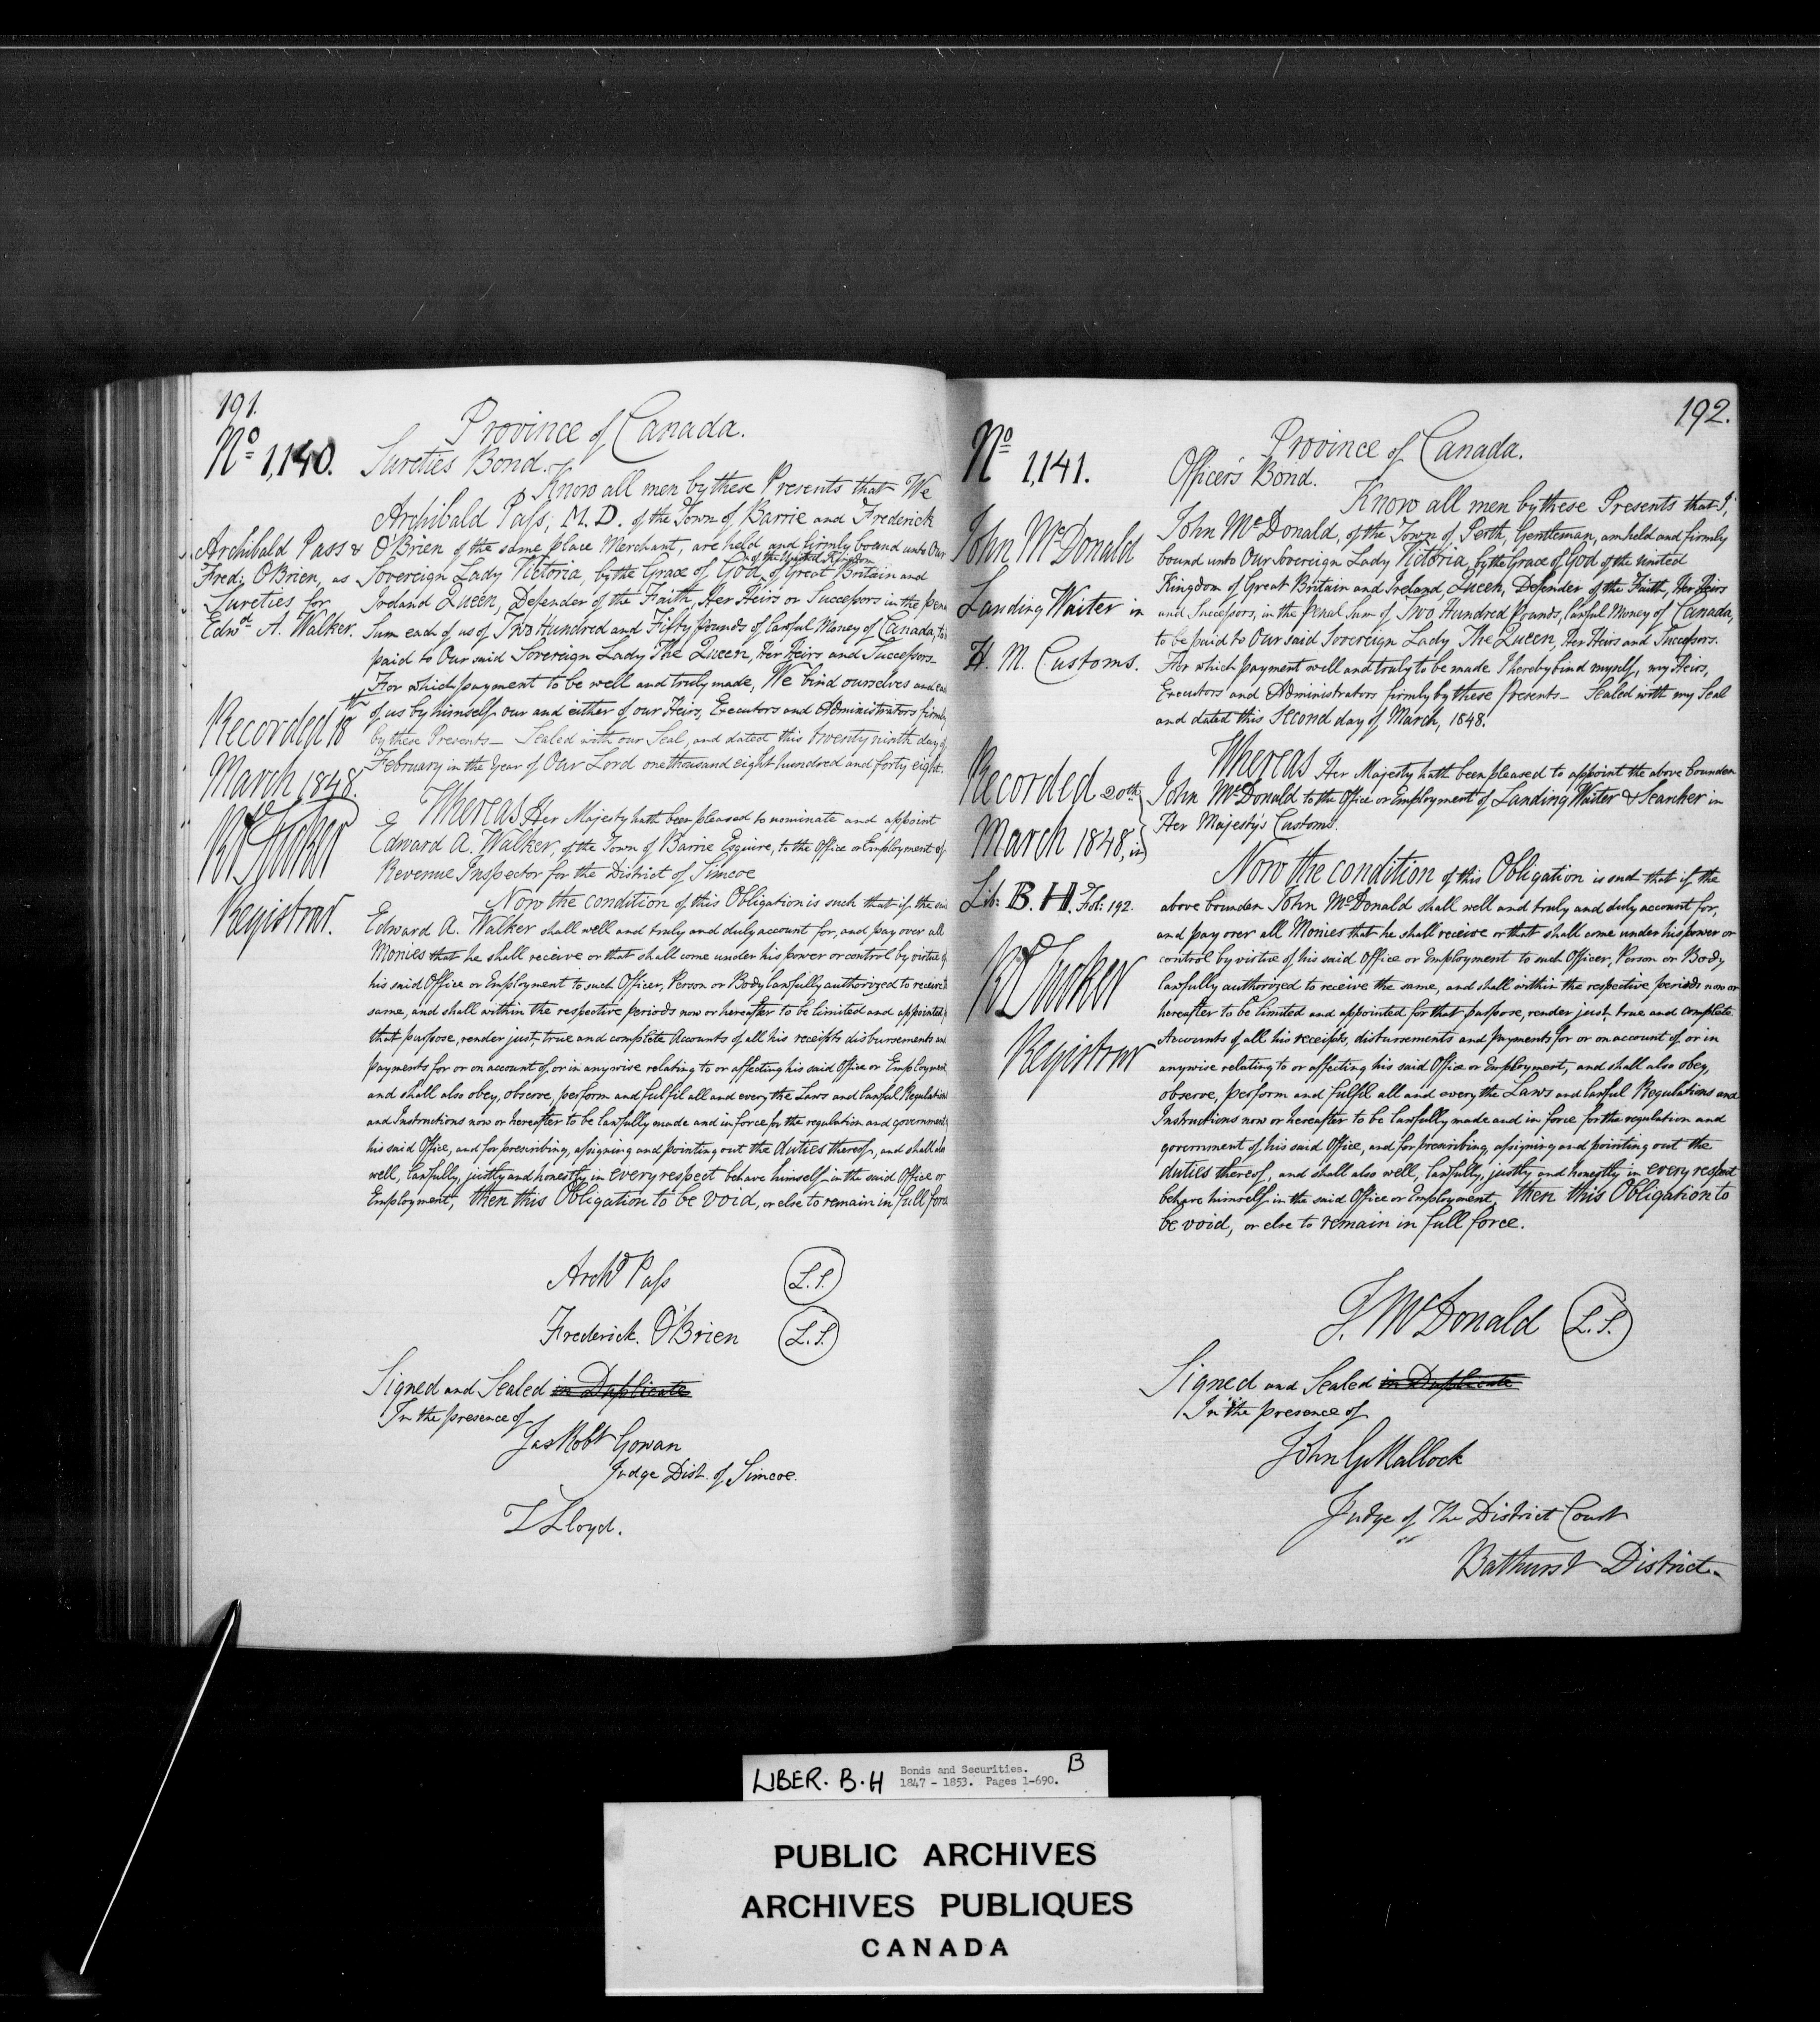 191.
Province of Canada.
No 1,140.
Sureties Bond.
Know all men by these Presents that We
Archibald Pass, M.D. of the Town of Barrie and Frederick
Archibald Pass &
Fred: O'Brien, as
Sureties for
Edwd A. Walker.
O'Brien of the same place Merchant, are held and firmly bound unto Our
of the United Kingdom
Sovereign Lady Victoria, by the Grace of God, of Great Britain and
Ireland Queen, Defender of the Faith, Her Heirs or Successors in the pen
Sum each of us of Two Hundred and Fifty pounds of lawful Money of Canada, to
paid to Our said Sovereign Lady The Queen, Her Heirs and Successors_
For which payment to be well and truly made, We bind ourselves and ea
of us by himself our and either of our Heirs, Executors and Administrators firmly
by these Presents_ Sealed with our Seal, and dated this twenty ninth day of
February in the Year of Our Lord one thousand eight hundred and forty eight.
Recorded 18th
March 1848.
RATucker
Registrar.
Whereas Her Majesty hath been pleased to nominate and appoint
Edward A. Walker, of the Town of Barrie Esquire, to the Office or Employment of
Revenue Inspector for the District of Simcoe
Now the condition of this Obligation is such that if the sai
Edward A. Walker shall well and truly and duly account for, and pay over all
Monies that he shall receive or that shall come under his power or control by virtue of
his said Office or Employment to such Officer, Person or Body lawfully authorized to receive
same, and shall within the respective periods now or hereafter to be limited and appointed
that purpose, render just, true and complete Accounts of all his receipts disbursements and
payments for or on account of, or in anywise relating to or affecting his said Office or Employment
and shall also obey, observe, perform and fulfil all and every the Laws and lawful Regulations
and Instructions now or hereafter to be lawfully made and in force for the regulation and government
his said Office, and for prescribing, assigning and pointing out the duties thereof, and shall als
well, lawfully, justly and honestly in every respect behave himself in the said Office or
Employment, then this Obligation to be void, or else to remain in full force
Archd Pass L.S.
Frederick. O'Brien L.S.
Signed and Sealed in Duplicate
In the presence of
Jas Robt Gowan
Judge Dist. of Simcoe.
T Lloyd.
192.
Province of Canada.
No 1,141.
Officer's Bond.
Know all men by these Presents that I,
John McDonald
Landing Waiter in
H. M. Customs.
John McDonald, of the Town of Perth, Gentleman, am held and firmly
bound unto Our Sovereign Lady Victoria, by the Grace of God of the united
Kingdom of Great Britain and Ireland, Queen, Defender of the Faith, Her Heirs
and Successors, in the penal Sum of Two Hundred Pounds, lawful Money of Canada,
to be paid to Our said Sovereign Lady The Queen, Her Heirs and Successors.
For which payment well and truly to be made I hereby bind myself, my Heirs,
Executors and Administrators firmly by these presents_ Sealed with my Seal
and dated this Second day of March, 1848.
Recorded 20th
March 1848, in
Lib: B.H. Fol: 192.
RATucker
Registrar
Whereas Her Majesty hath been pleased to appoint the above bounden
John McDonald to the Office or Employment of Landing Waiter & Searcher in
Her Majesty's Customs.
Now the condition of this Obligation is such that if the
above bounden John McDonald shall well and truly and duly account for,
and pay over all Monies that he shall receive or that shall come under his power or
control by virtue of his said Office or Employment to such Officer, Person or Body
lawfully authorized to receive the same, and shall within the respective periods now or
hereafter to be limited and appointed for that purpose, render just, true and complete
Accounts of all his receipts, disbursements and payments for or on account of, or in
anywise relating to or affecting his said Office or Employment, and shall also obey,
observe, perform and fulfil all and every the Laws and lawful Regulations and
Instructions now or hereafter to be lawfully made and in force for the regulation and
government of his said Office, and for prescribing, assigning and pointing out the
duties thereof, and shall also well, lawfully, justly and honestly in every respect
behave himself in the said Office or Employment, then this Obligation to
be void, or else to remain in full force.
J. McDonald L.S.
Signed and Sealed in Duplicate
In the presence of
John G Mallock
Judge of The District Court
Bathurst District.
LIBER. B.H Bonds and Securities. B
1847 - 1853. Pages 1-690.
PUBLIC ARCHIVES
ARCHIVES PUBLIQUES
CANADA